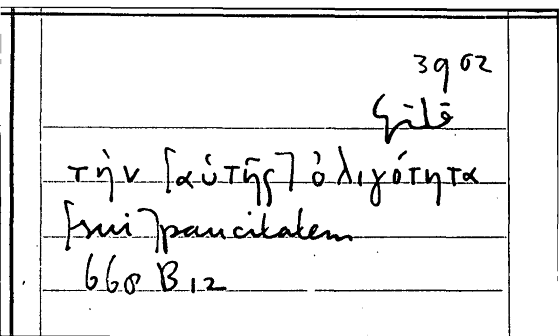 3902
τὴν [αὑτῆς] ὀλιγότητα
[sui] paucitatem
668 B 12